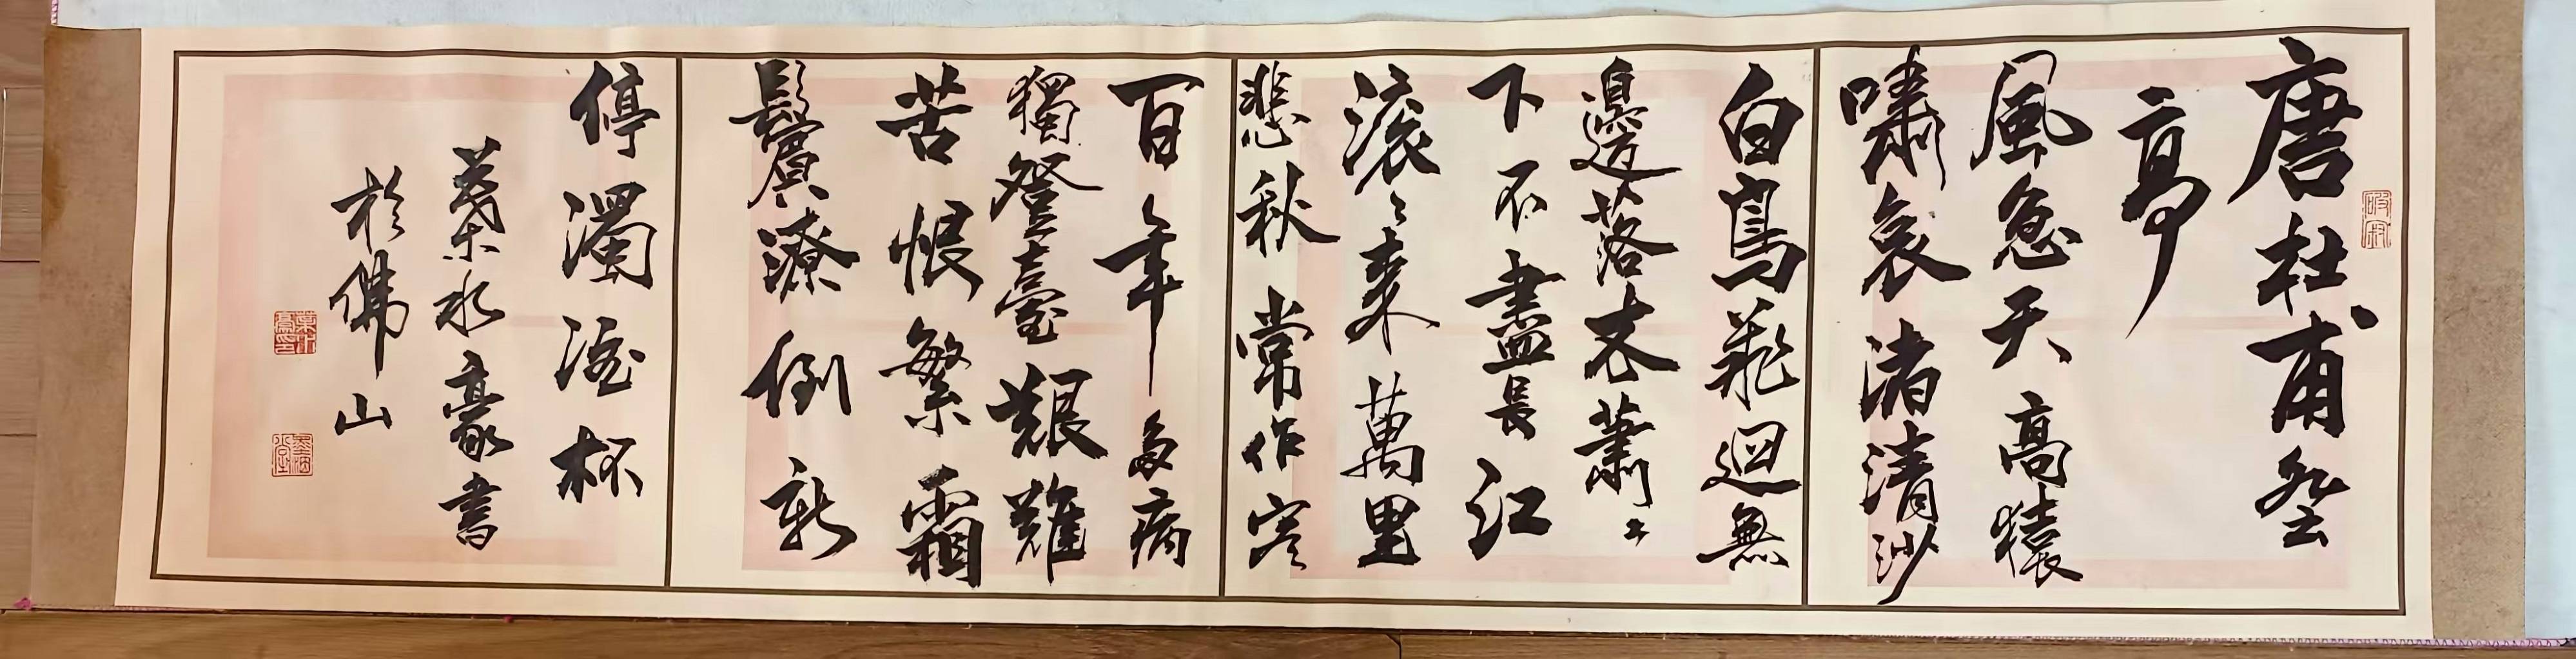 唐杜甫登
高
風急天高猿
嘯哀渚清沙
白鳥飛迴無
邊落木蕭〻
下不盡長江
滾〻來萬里
悲秋常作客
百年多病
獨登臺艱難
苦恨繁霜
鬢潦倒新
停濁酒杯
葉水豪書
於佛山